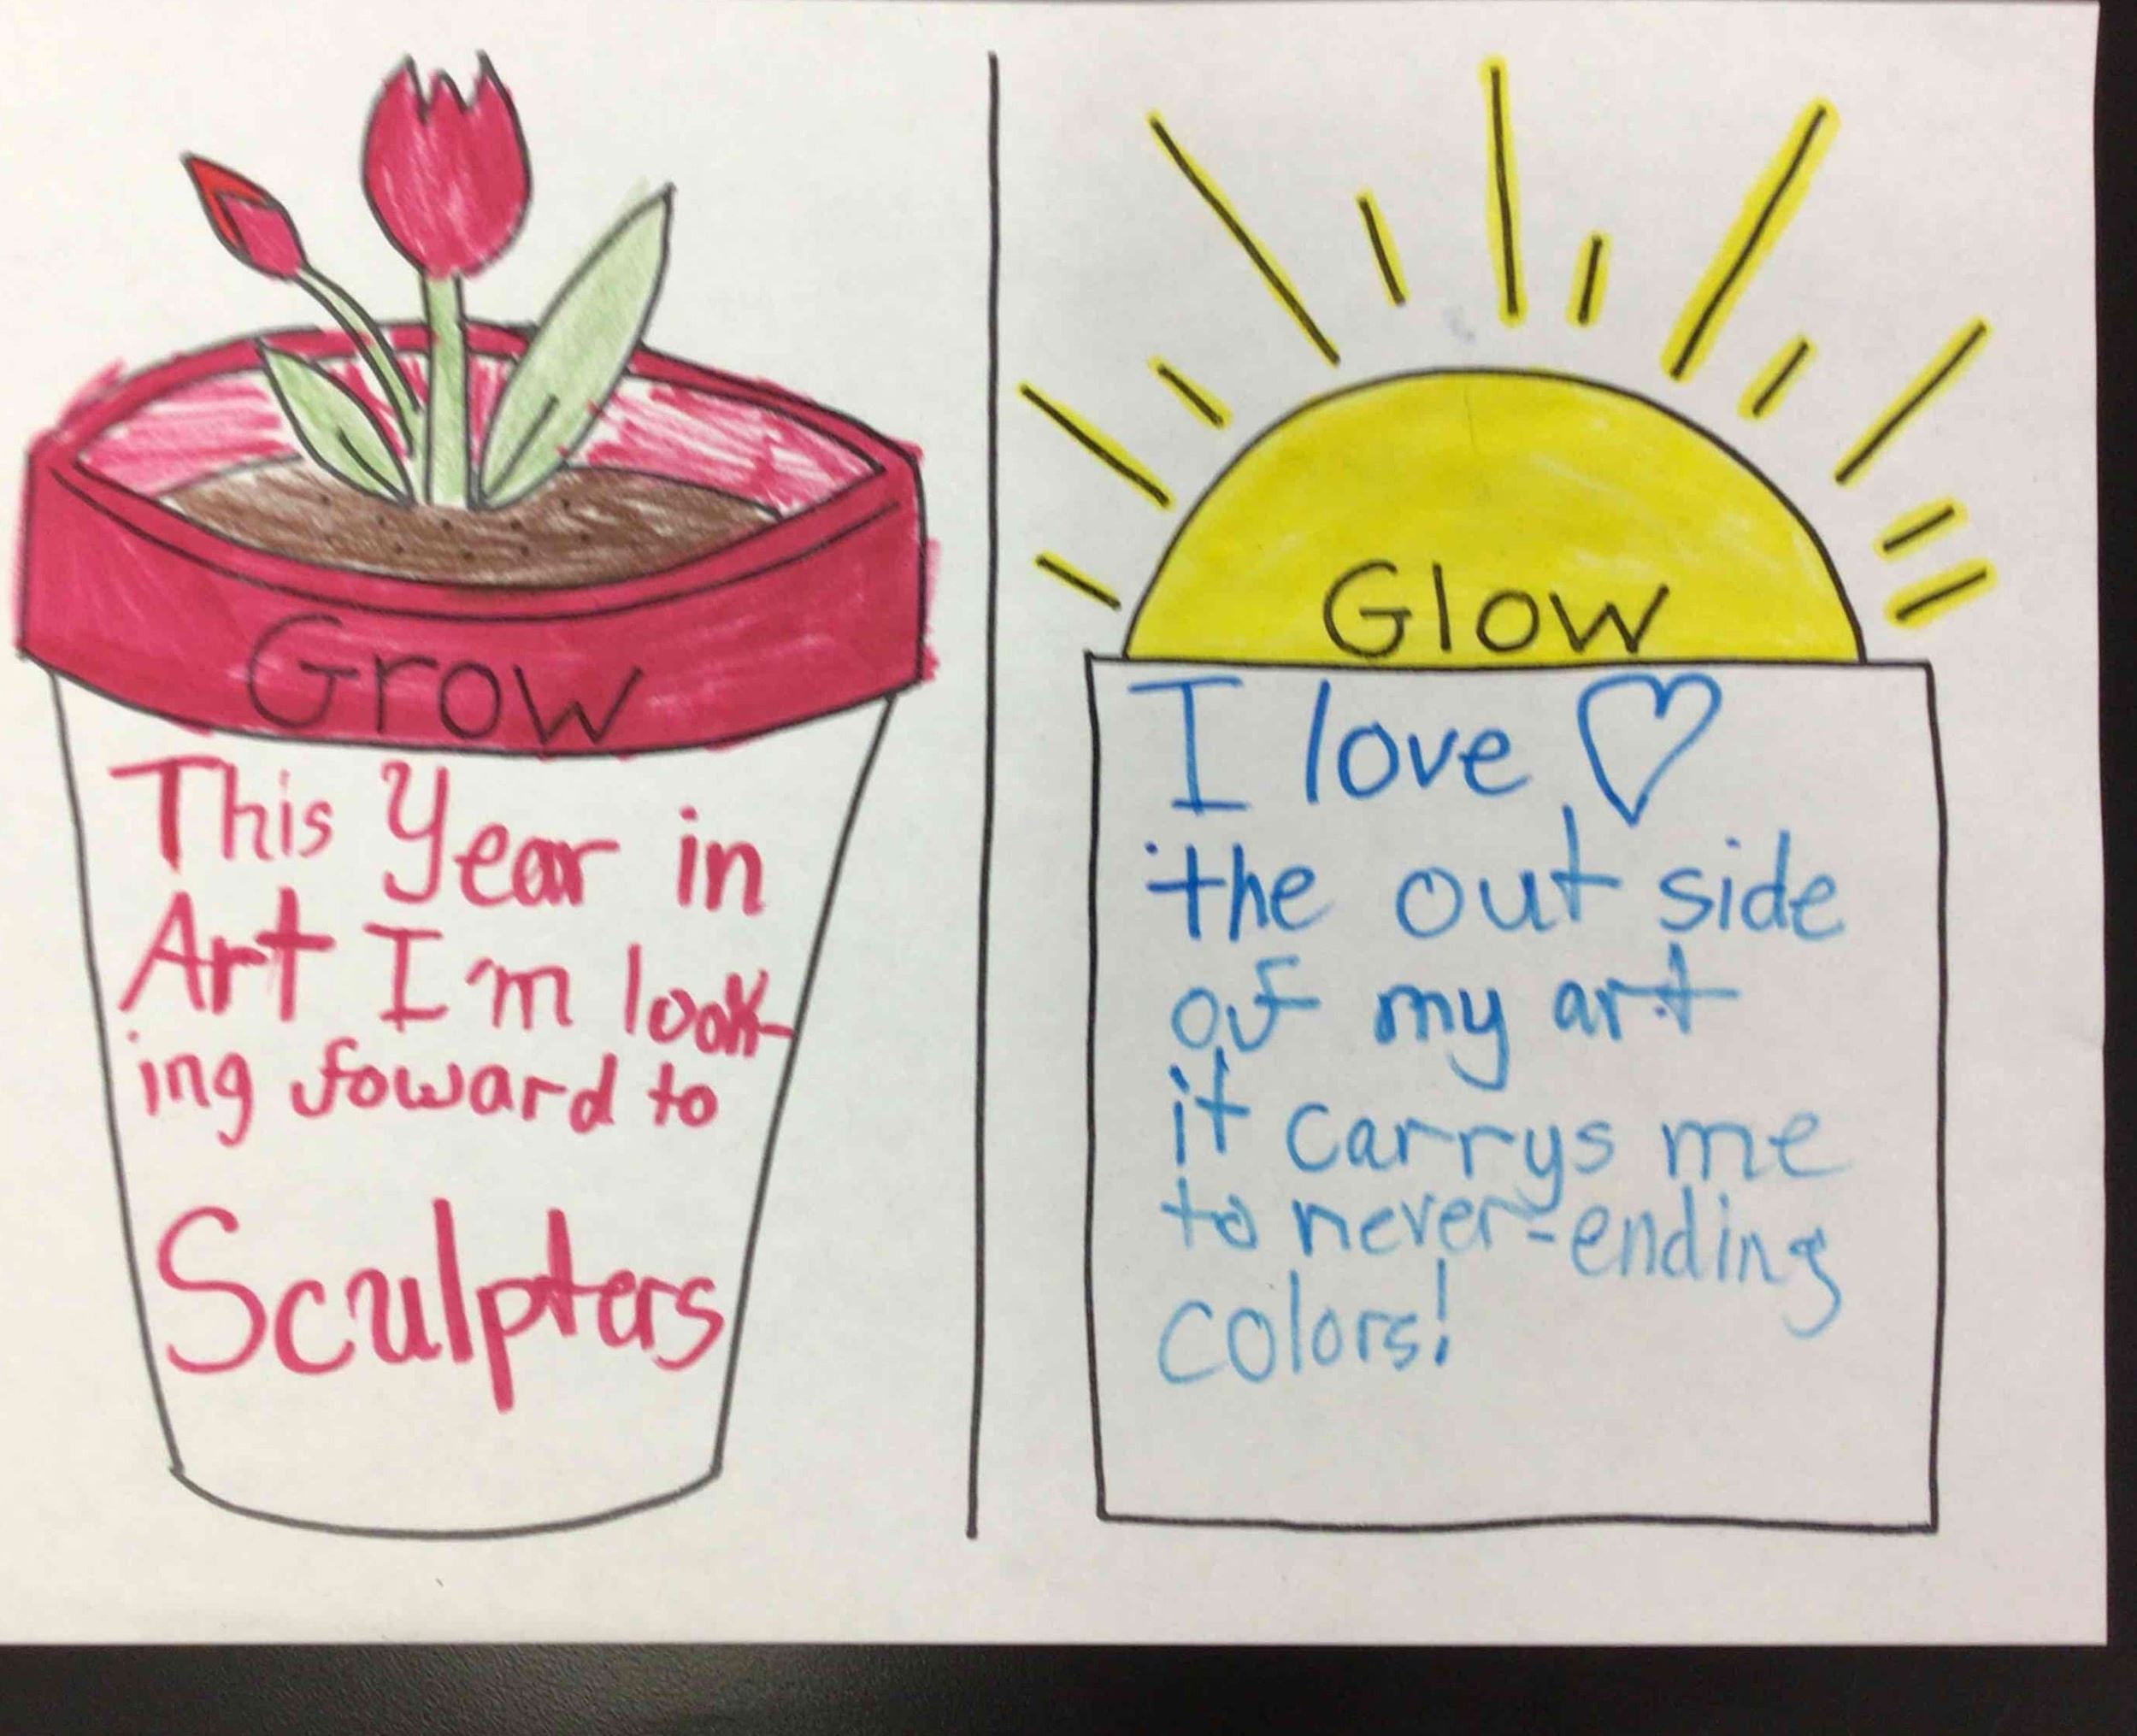 Grow
This Year in
Art I'm look-
ing foward to
Sculpters
Glow
I love ♡
the out side
of my art
it carrys me
to never-ending
colors!